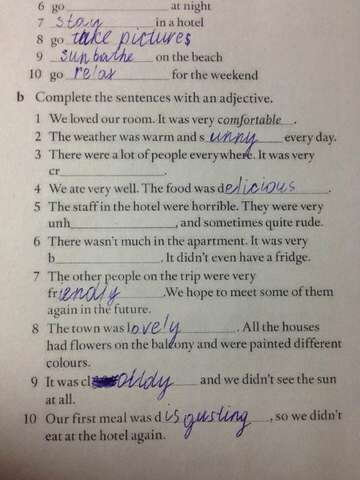 6 go ____ at night
7 stay in a hotel
8 go take pictures
9 sunbathe on the beach
10 go relax for the weekend
b Complete the sentences with an adjective.
1 We loved our room. It was very comfortable.
2 The weather was warm and sunny every day.
3 There were a lot of people everywhere. It was very
cr____.
4 We ate very well. The food was delicious.
5 The staff in the hotel were horrible. They were very
unh____, and sometimes quite rude.
6 There wasn't much in the apartment. It was very
b____. It didn't even have a fridge.
7 The other people on the trip were very
friendly. We hope to meet some of them
again in the future.
8 The town was lovely. All the houses
had flowers on the balcony and were painted different
colours.
9 It was clouldy and we didn't see the sun
at all.
10 Our first meal was disgusting, so we didn't
eat at the hotel again.